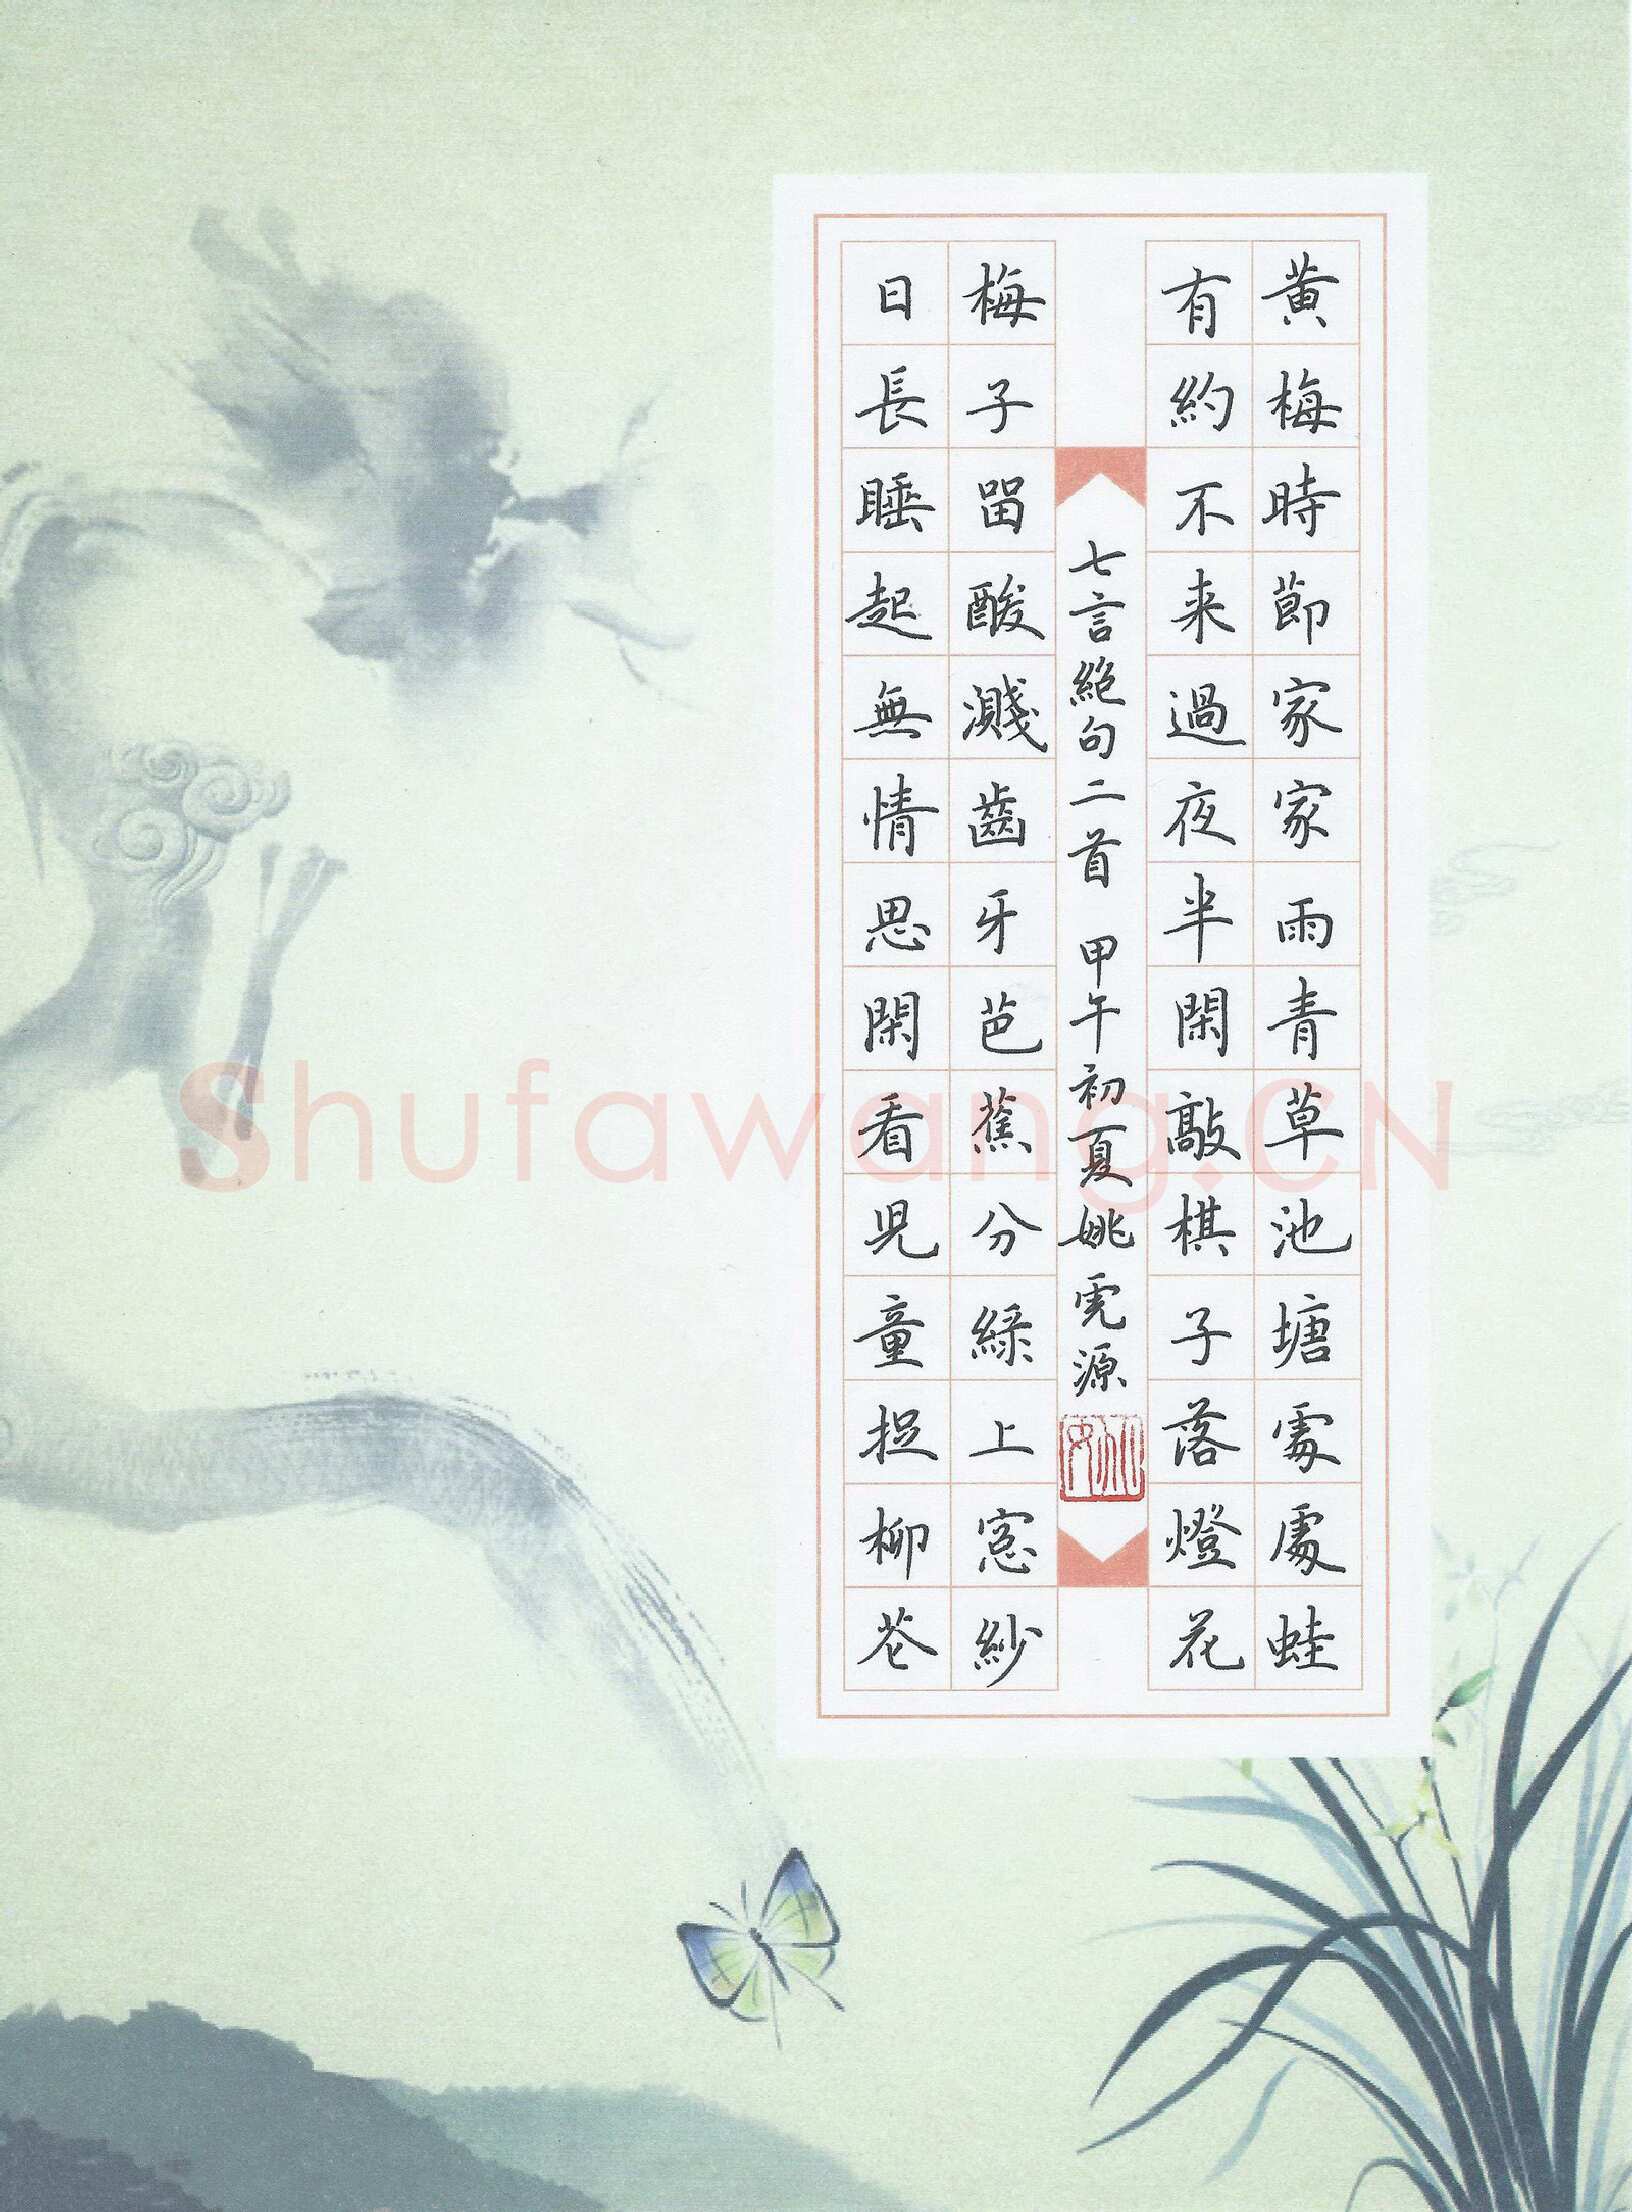 黄梅時節家家雨青草池塘處處蛙
有約不来過夜半閑敲棋子落燈花
七言絕句二首 甲午初夏姚虎源
梅子留酸濺齒牙芭蕉分綠上窓紗
日長睡起無情思閑看児童捉柳花
Shufawang.CN